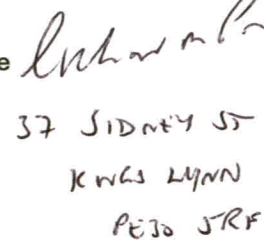 e
37 SIDNEY ST
KINGS LYNN
PE30 5RF